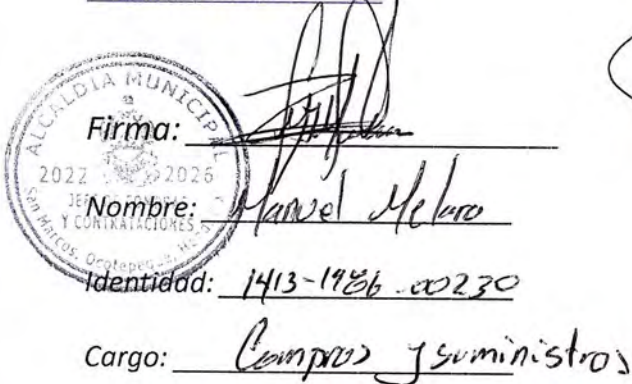 ALCALDIA MUNICIPAL
2022 2026
JEFE DE COMPRAS
Y CONTRATACIONES
San Marcos, Ocotepeque,
Firma:
Nombre: Manuel Melara
Identidad: 1413-1986-00230
Cargo: Compras y suministros